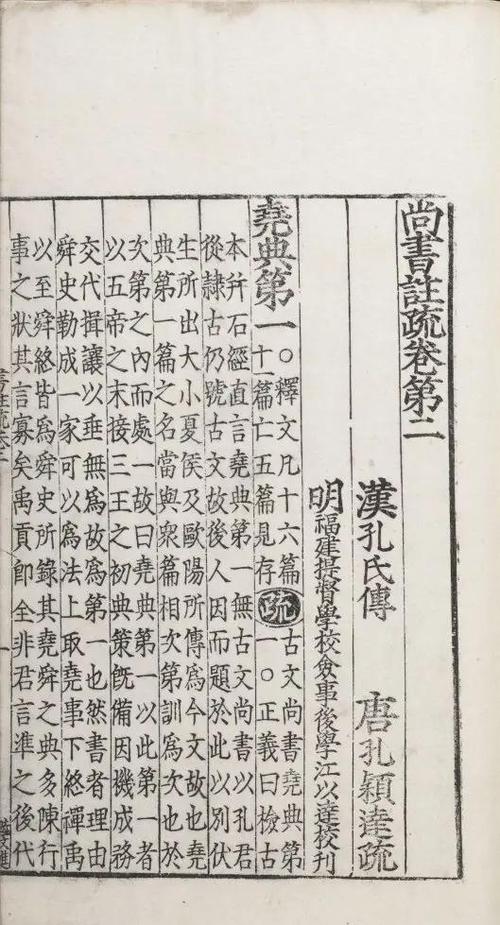 尚書註疏卷第二
漢孔氏傳 唐孔穎達疏
明福建提督學校僉事後學江以達校刊
堯典第一
○釋文凡十六篇
十一篇亡五篇見存
疏
古文尚書堯典第
一○正義曰檢古
本并石經直言堯典第一無古文尚書以孔君
從隸古仍號古文故後人因而題於此以別伏
生所出大小夏侯及歐陽所傳爲今文故也堯
典第一篇之名當與衆篇相次第訓爲次也於
次第之內而處一故曰堯典第一以此第一者
以五帝之末接三王之初典策旣備因機成務
交代揖讓以垂無爲故爲第一也然書者理由
舜史勒成一家可以爲法上取堯事下終禪禹
以至舜終皆爲舜史所錄其堯舜之典多陳行
事之狀其言寡矣禹貢即全非君言準之後代